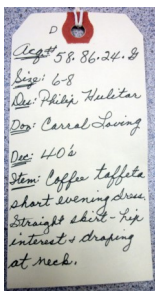 D
Acq# 58.86.24.g
Size: 6-8
Des: Philip Hulitar
Don: Carral Loving
Dec: 40's
Item: Coffee taffeta
short evening dress.
Straight skirt - hip
interest & draping
at neck.